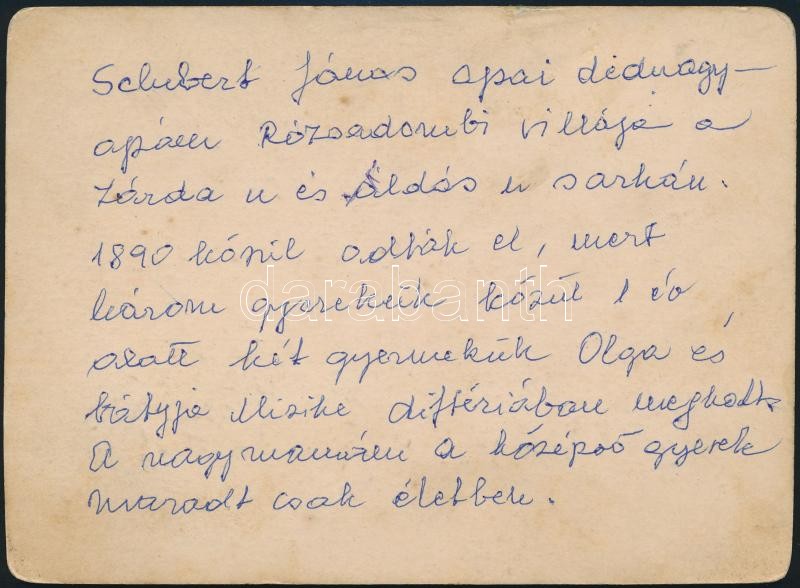 Schubert János apai dédnagy-
apám Rózsadombi villája a
Zárda u és Áldás u sarkán.
1890 körül adták el, mert
három gyerekük közül 1 év
alatt két gyermekük Olga és
bátyja Misike diftériában meghalt.
A nagymamám a középső gyerek
maradt csak életben.
darabanth